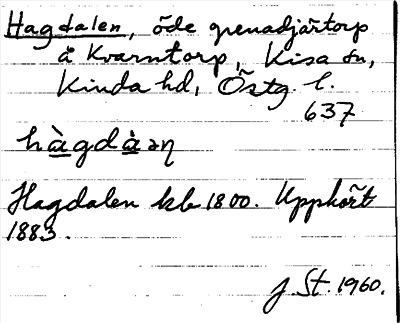 Hagdalen, öde grenadjärtorp
å Kvarntorp, Kisa sn,
Kinda hd, Östg. l.
637
hàgdàəɳ
Hagdalen kb 1800. Uppkört
1883.
J. St. 1960.